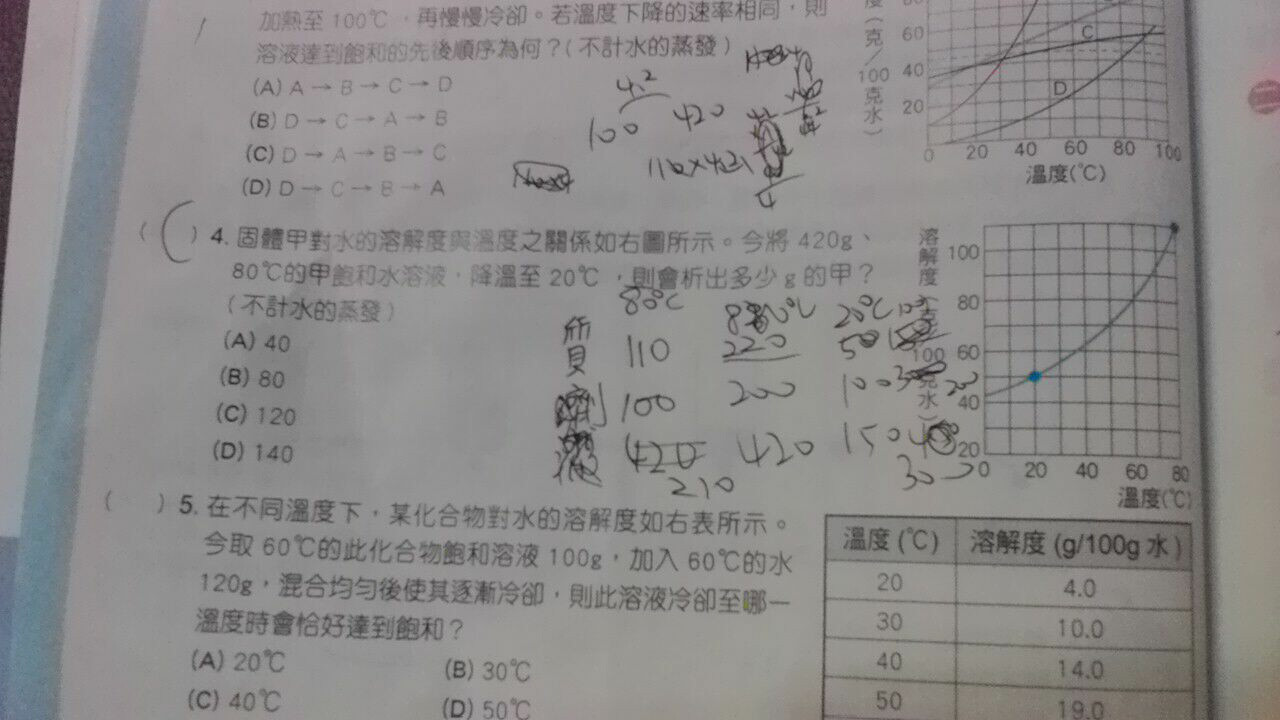 加熱至 100℃，再慢慢冷卻。若溫度下降的速率相同，則
溶液達到飽和的先後順序為何？(不計水的蒸發)
(A) A → B → C → D
(B) D → C → A → B
(C) D → A → B → C
(D) D → C → B → A
4.2
100
420
度(克/100克水)
60
40
20
C
D
0 20 40 60 80 100
溫度(℃)
( ) 4. 固體甲對水的溶解度與溫度之關係如右圖所示。今將 420g、
80℃的甲飽和水溶液，降溫至 20℃，則會析出多少 g 的甲？
(不計水的蒸發)
(A) 40
(B) 80
(C) 120
(D) 140
80℃
20℃
質 110 220 50
劑 100 200 100
液 420 420 150
210
300
溶解度(克/100克水)
100
80
60
40
20
0 20 40 60 80
溫度(℃)
( ) 5. 在不同溫度下，某化合物對水的溶解度如右表所示。
今取 60℃的此化合物飽和溶液 100g，加入 60℃的水
120g，混合均勻後使其逐漸冷卻，則此溶液冷卻至哪一
溫度時會恰好達到飽和？
(A) 20℃ (B) 30℃
(C) 40℃ (D) 50℃
溫度(℃) 溶解度(g/100g 水)
20 4.0
30 10.0
40 14.0
50 19.0